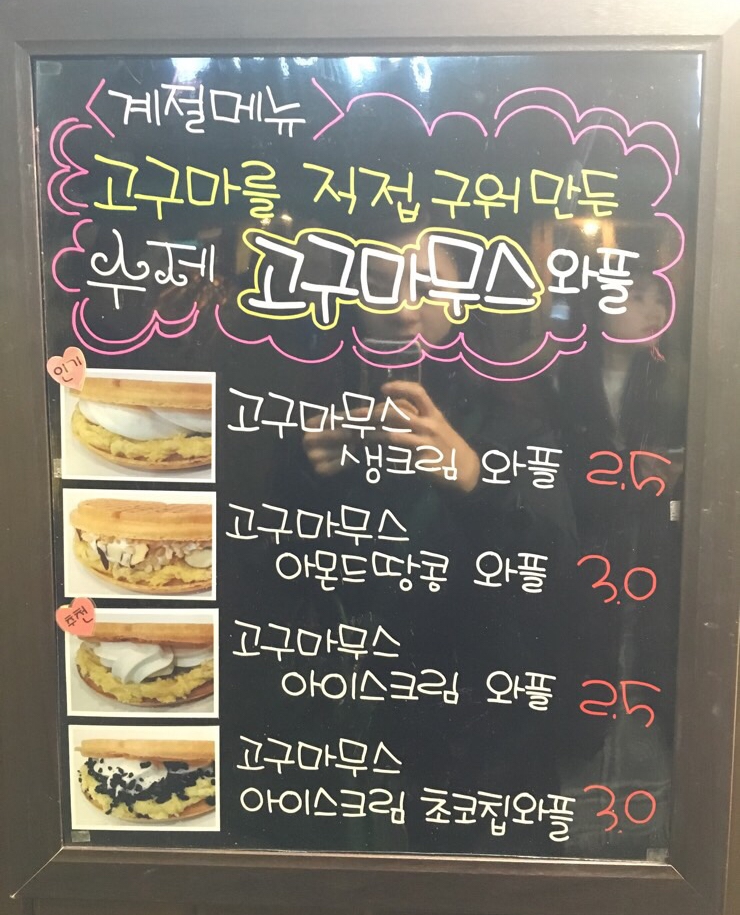 <계절메뉴>
고구마를 직접 구워 만든
수제 고구마무스 와플
인기
고구마무스
생크림 와플 2.5
고구마무스
아몬드땅콩 와플 3.0
추천
고구마무스
아이스크림 와플 2.5
고구마무스
아이스크림 초코칩와플 3.0